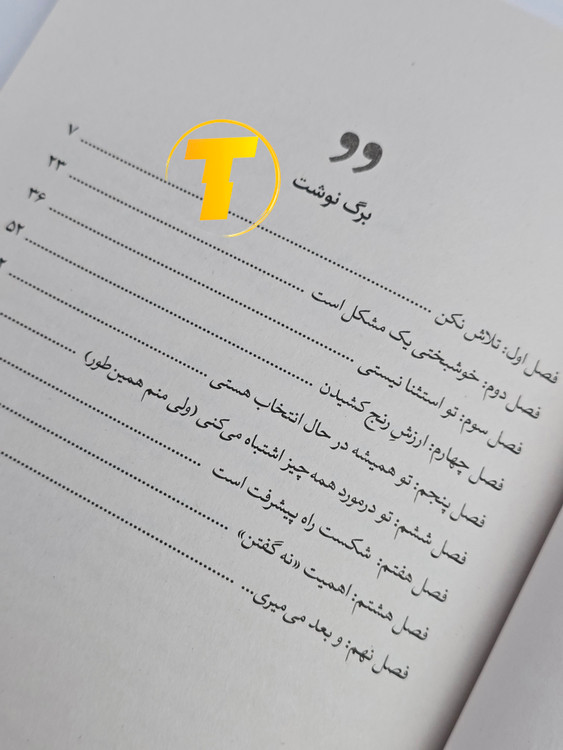 برگ نوشت
فصل اول: تلاش نکن ۷
فصل دوم: خوشبختی یک مشکل است ۲۳
فصل سوم: تو استثنا نیستی ۳۶
فصل چهارم: ارزشِ رنج کشیدن ۵۲
فصل پنجم: تو همیشه در حال انتخاب هستی
فصل ششم: تو درمورد همه‌چیز اشتباه می‌کنی (ولی منم همین‌طور)
فصل هفتم: شکست راه پیشرفت است
فصل هشتم: اهمیت «نه گفتن»
فصل نهم: و بعد می‌میری...